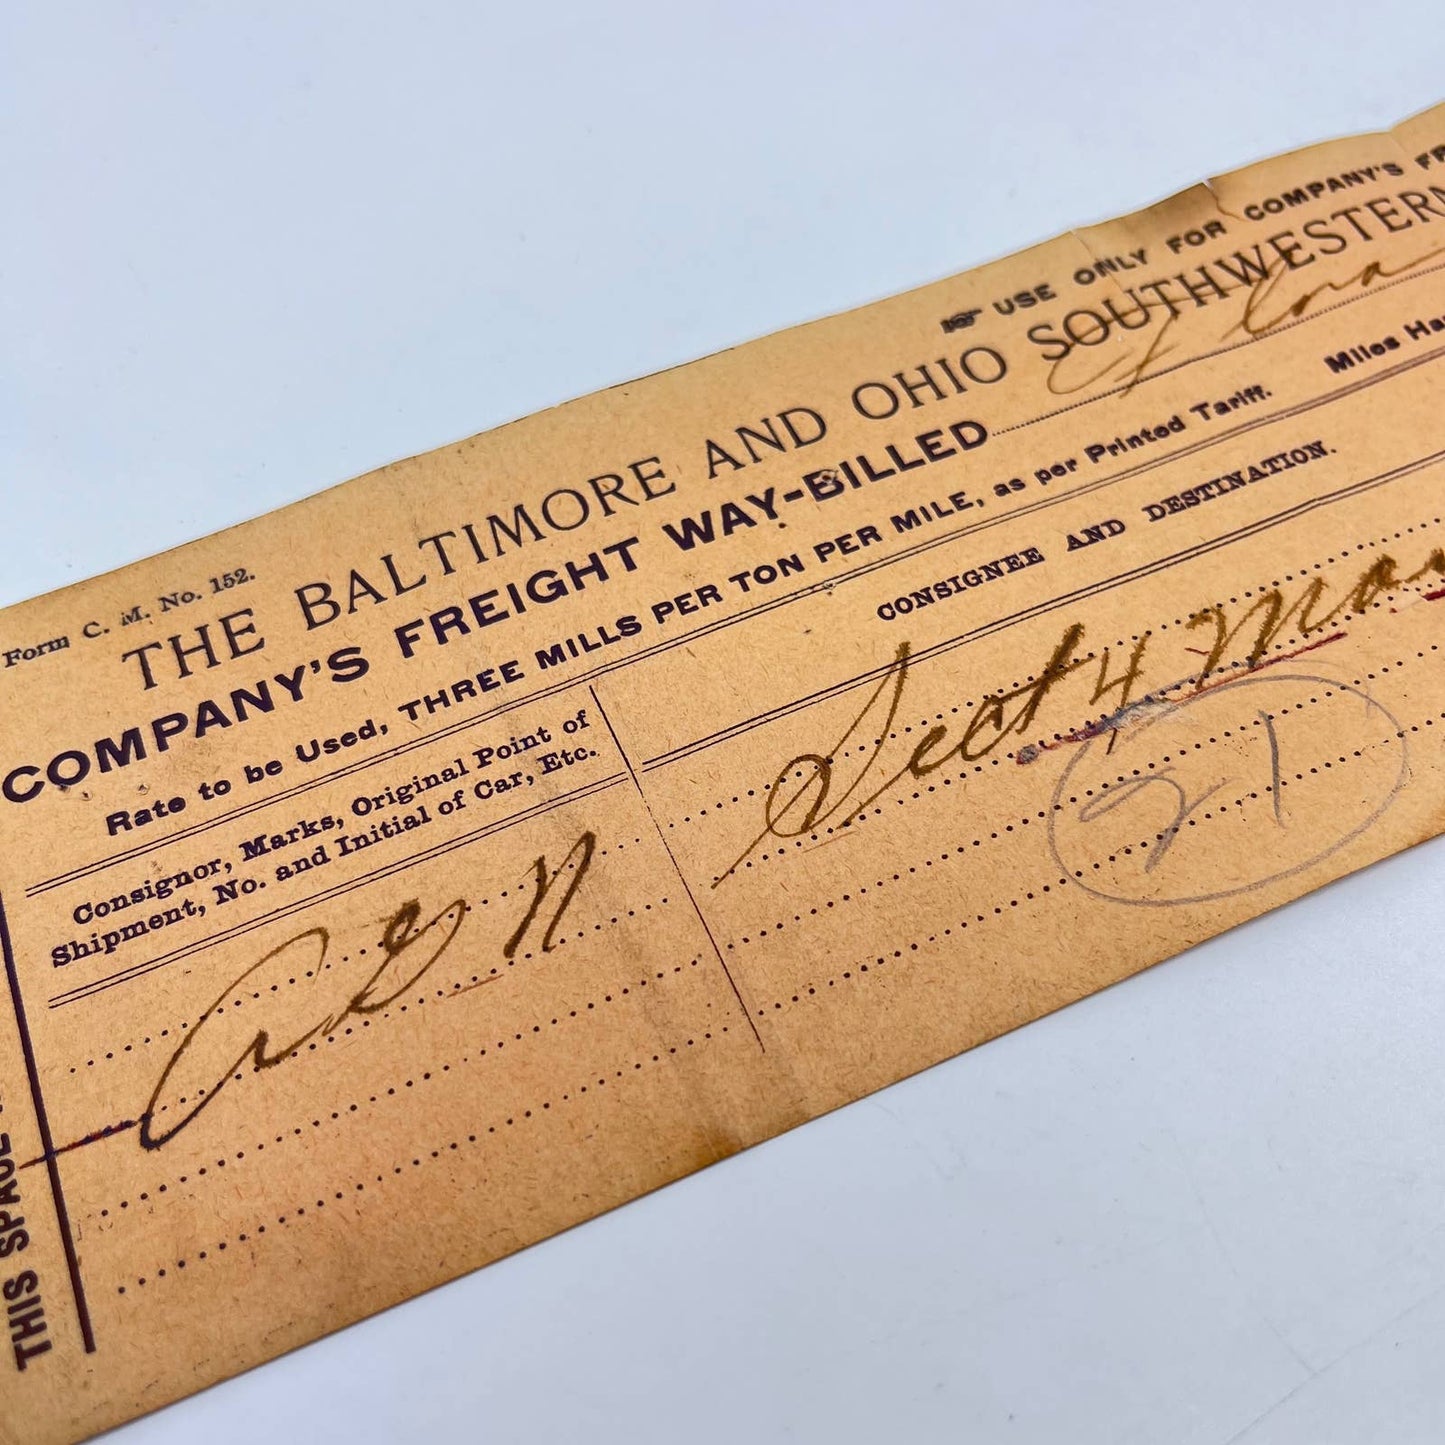 Form C. M. No. 152.
☞ USE ONLY FOR COMPANY'S FR
THE BALTIMORE AND OHIO SOUTHWESTERN
COMPANY'S FREIGHT WAY-BILLED
Rate to be Used, THREE MILLS PER TON PER MILE, as per Printed Tariff. Miles Ha
Consignor, Marks, Original Point of
Shipment, No. and Initial of Car, Etc.
CONSIGNEE AND DESTINATION.
Sect 4
21
THIS SPACE